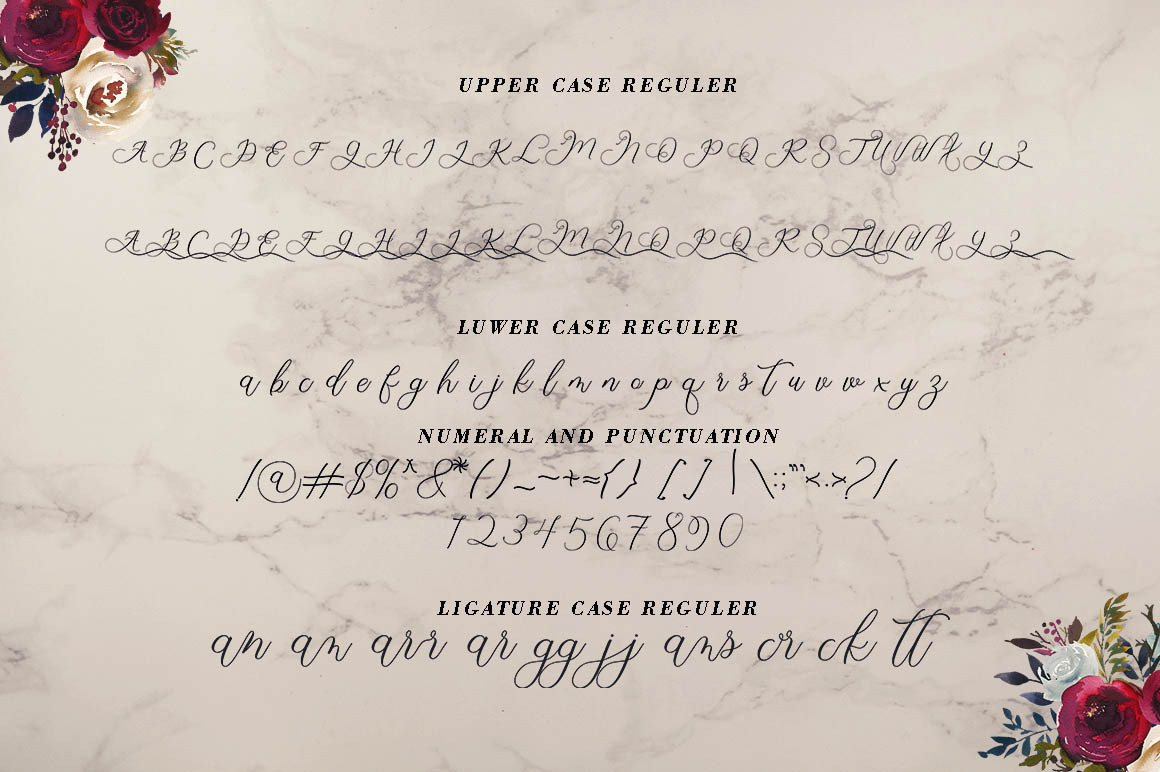 UPPER CASE REGULER
A B C D E F G H I J K L M N O P Q R S T U V W X Y Z
A B C D E F G H I J K L M N O P Q R S T U V W X Y Z
LUWER CASE REGULER
a b c d e f g h i j k l m n o p q r s t u v w x y z
NUMERAL AND PUNCTUATION
/@#$%^&*()_~+≈{} [] |\:;"'<.>?/
1234567890
LIGATURE CASE REGULER
an an arr ar gg jj ans or ck tt